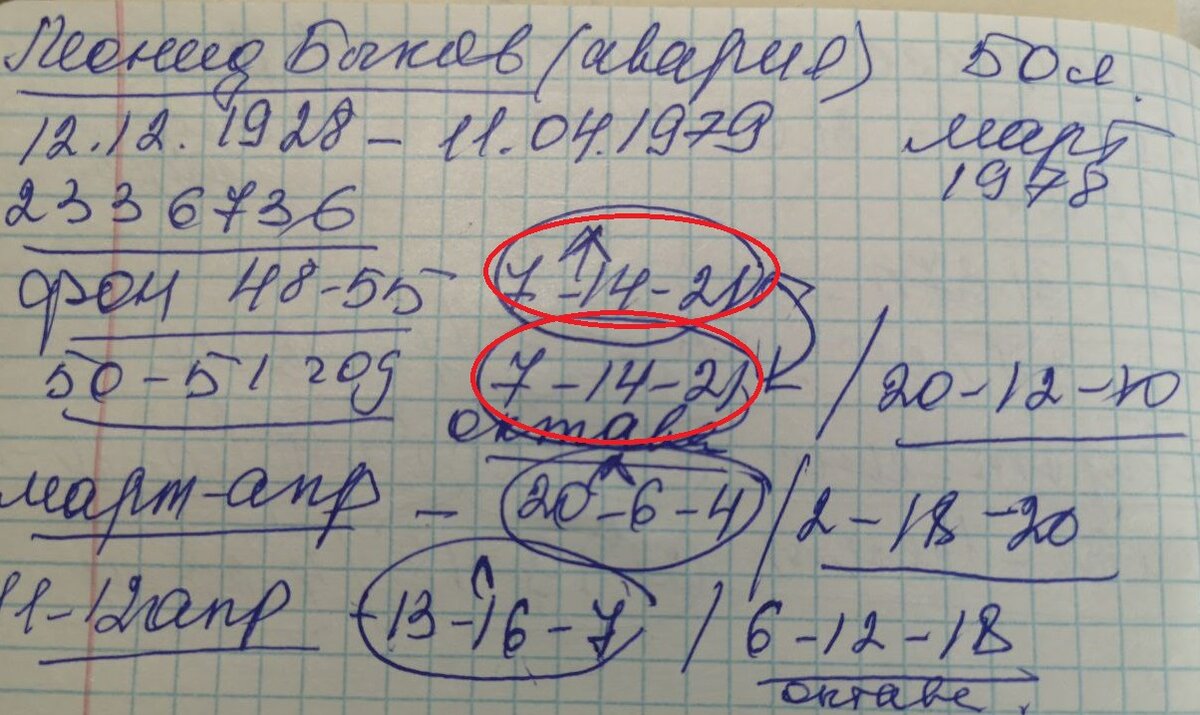 Леонид Быков (авария) 50 л.
12.12.1928 – 11.04.1979 март
1978
2336736
фон 48-55 7-14-21
50-51 год 7-14-21 / 20-12-10
октава
март-апр – 20-6-4 / 2-18-20
11-12 апр -13-16-7 / 6-12-18
октава